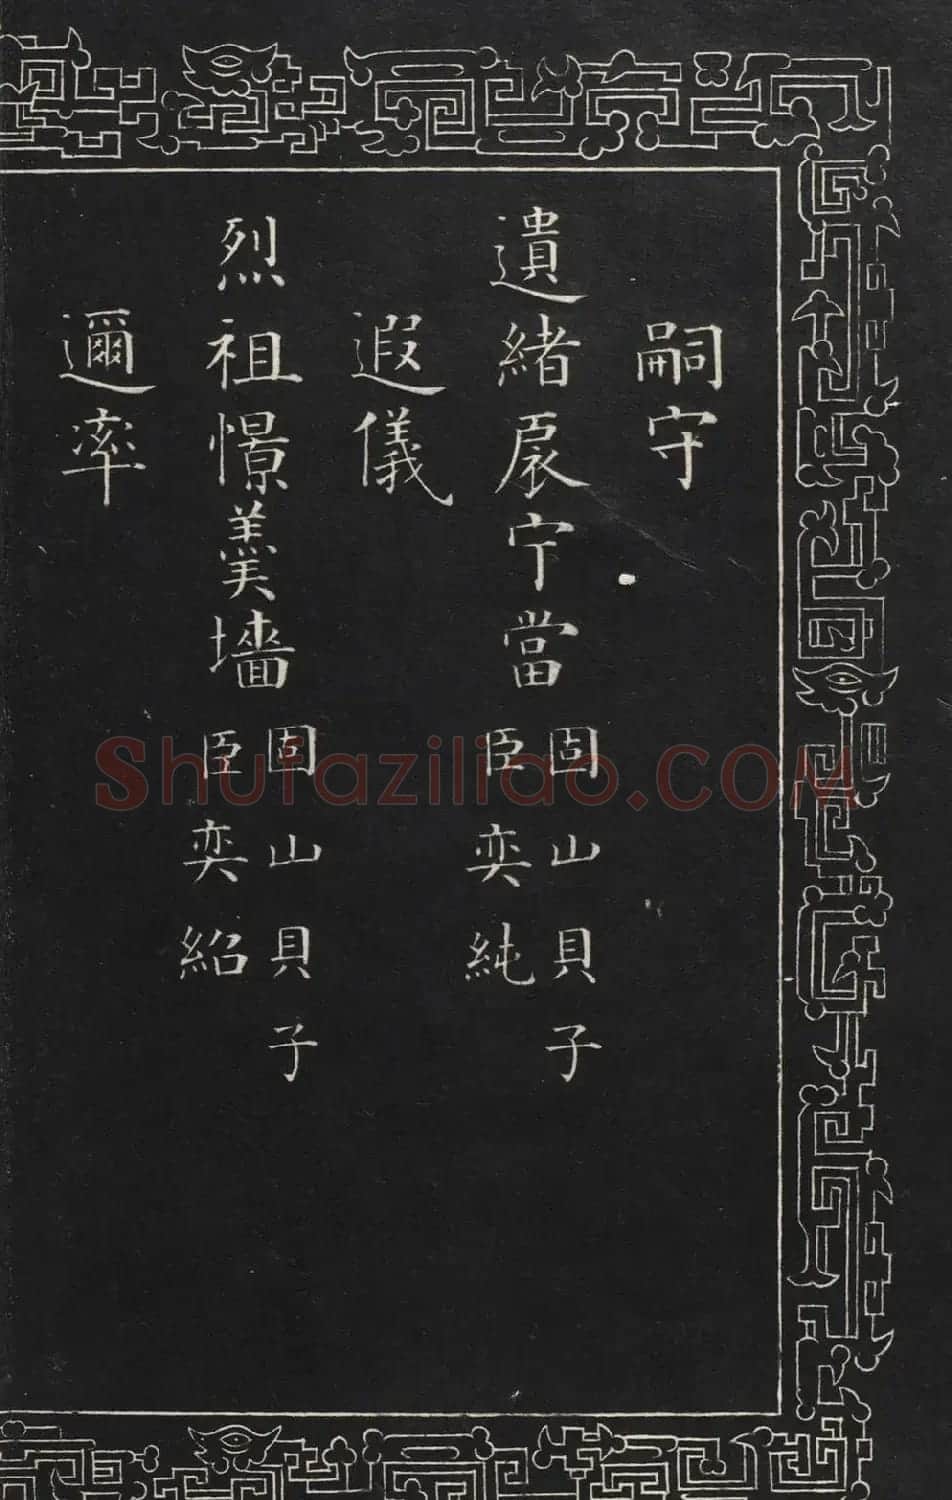 嗣守
遺緒扆宁當
固山貝子
臣奕純
遐儀
烈祖憬羹墻
固山貝子
臣奕紹
邇率
Shufaziliao.COM